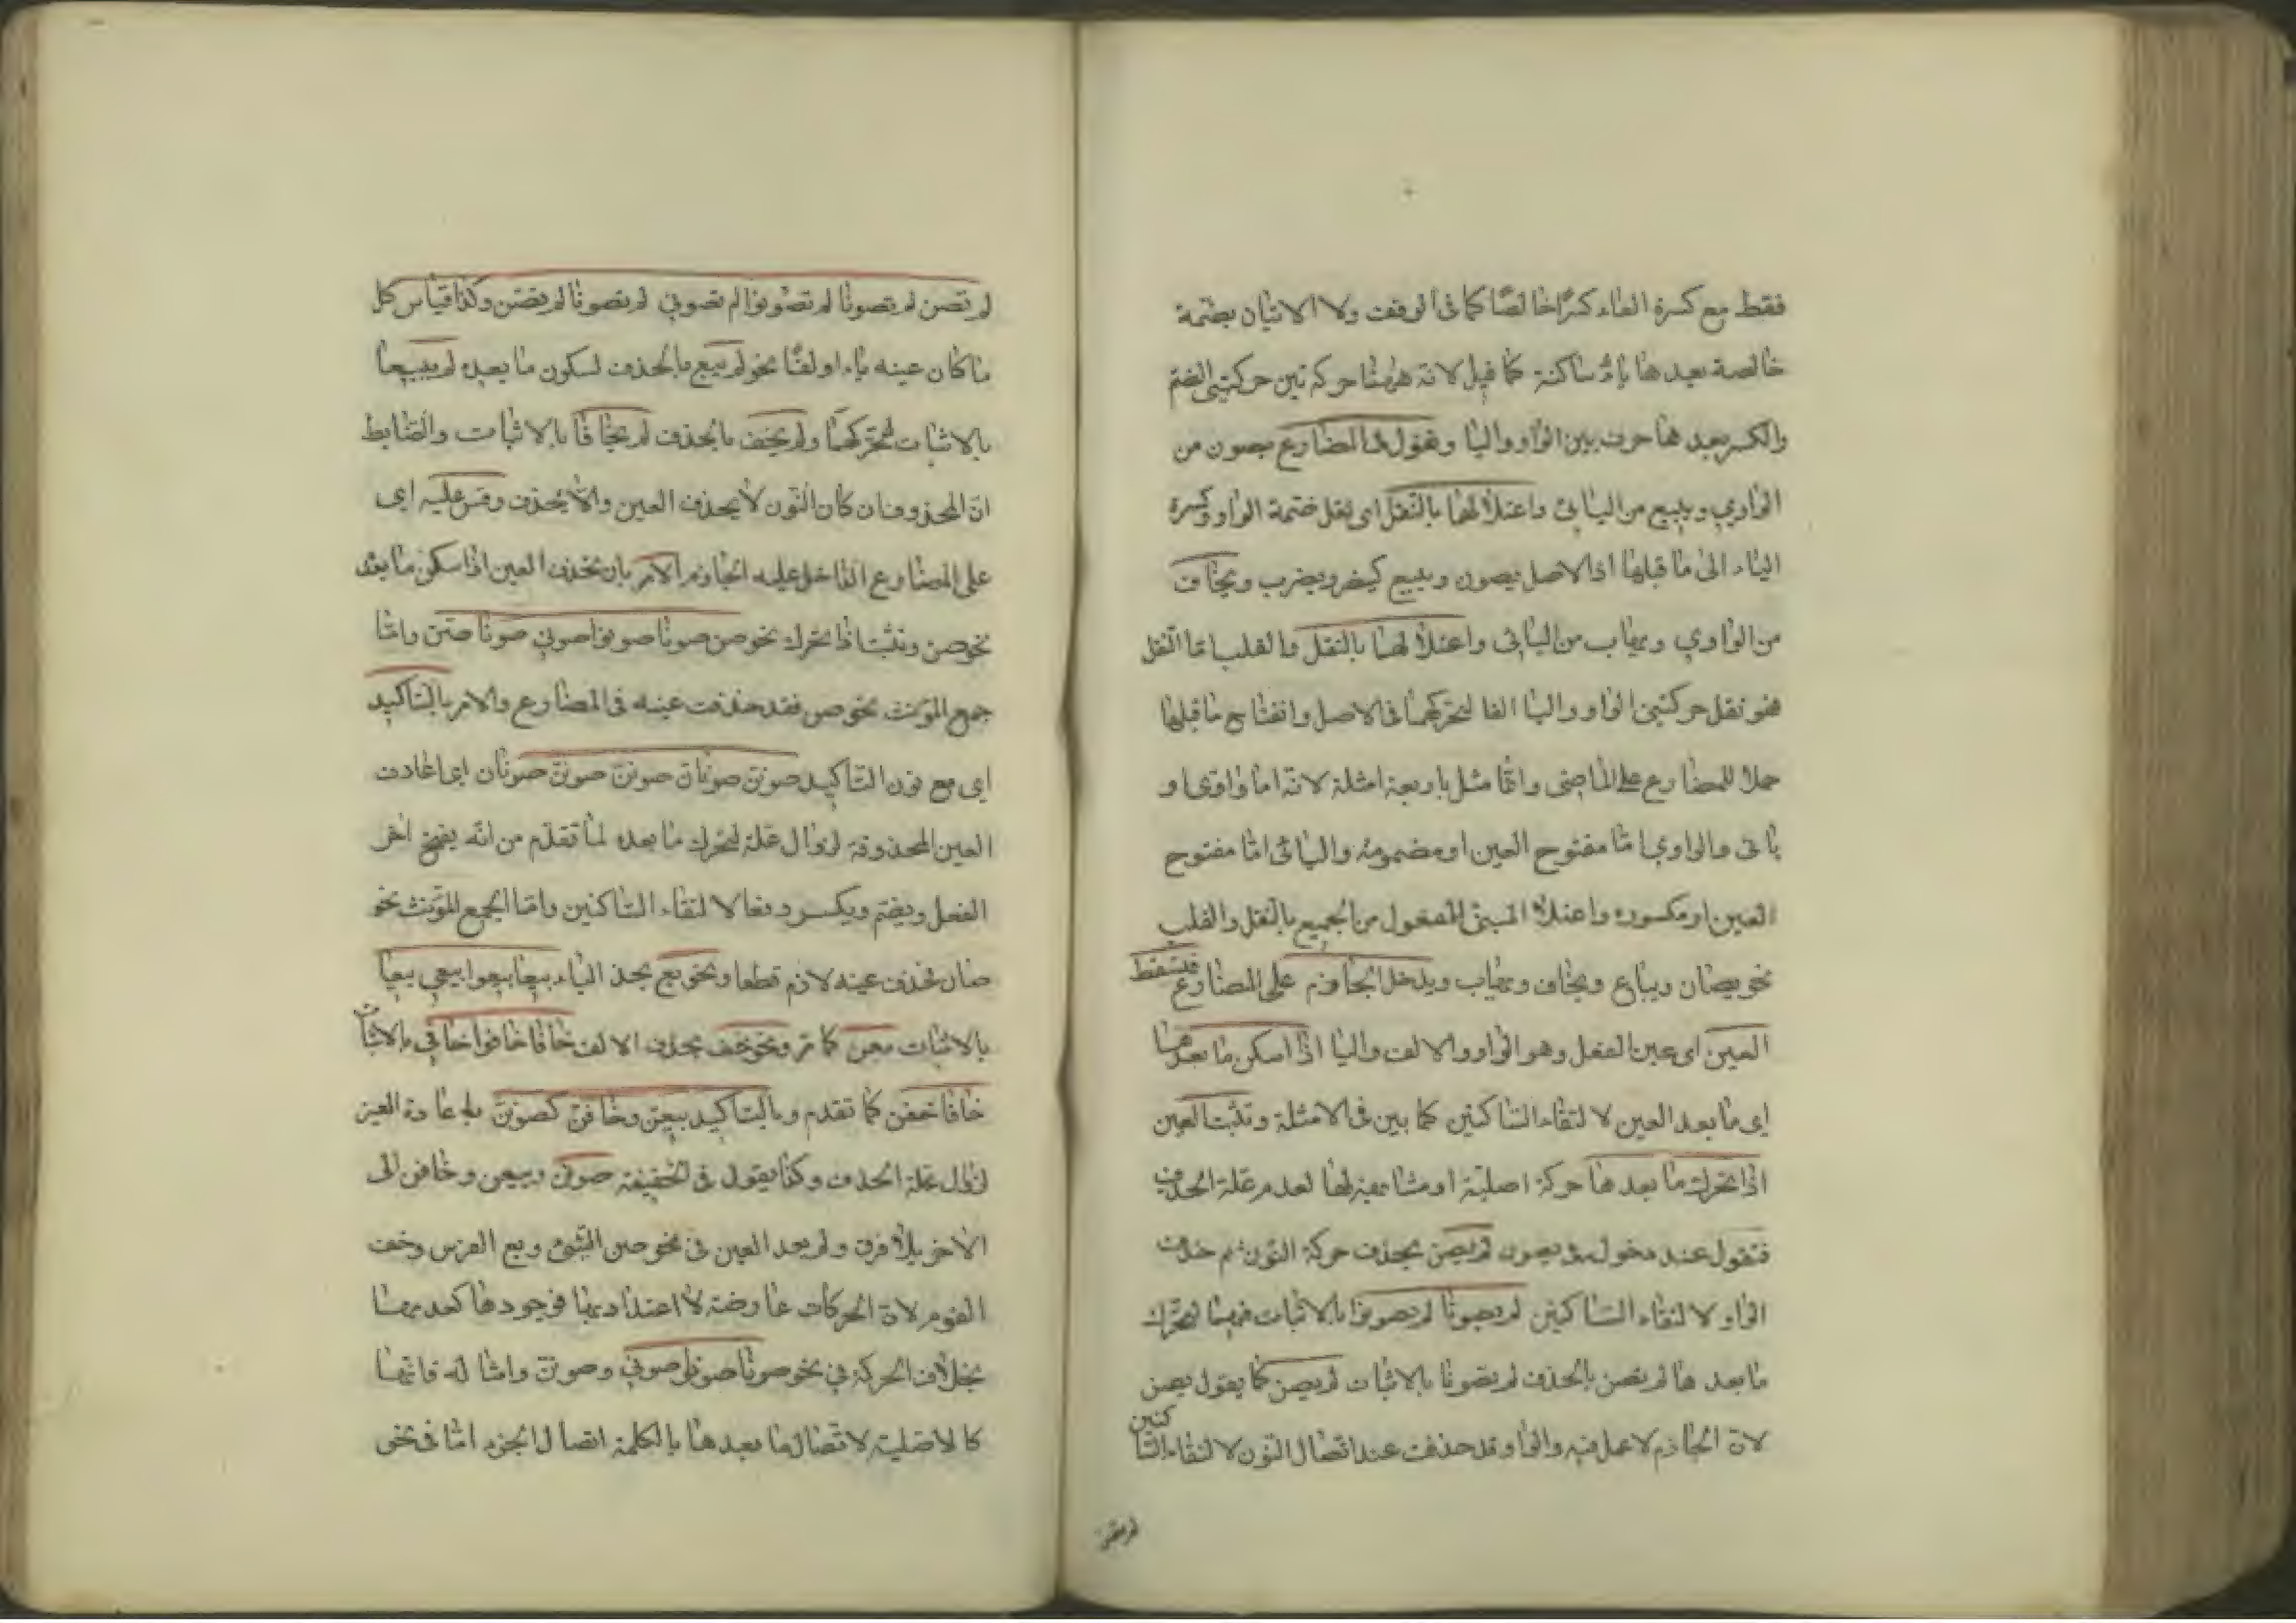 فقط مع كسرة الفاء كسرًا خالصًا كما فى الوقف ولا الاتيان بضمة
خالصة بعدها ياءٌ ساكنة كما قيل لانه ههنا حركة بين حركتى الضم
والكسر بعدها حرف بين الواو واليا وتقول فى المضارع يصون من
الواوي ويبيع من اليائى واعتلالهما بالنقل اى نقل ضمة الواو وكسرة
الياء الى ما قبلها اذ الاصل يصون ويبيع كينصر ويضرب ويخاف
من الواوي ويهاب من اليائى واعتلالهما بالنقل والقلب اما النقل
فهو نقل حركتى الواو واليا الفا لتحركهما فى الاصل وانفتاح ما قبلها
حملا للمضارع على الماضى وانما مثل باربعة امثلة لانه اما واوى او
يائى والواوي اما مفتوح العين او مضمومه واليائى اما مفتوح
العين او مكسوره واعتلال المبنى للمفعول من الجميع بالنقل والقلب
نحو يصان ويباع ويخاف ويهاب ويدخل الجازم على المضارع فتسقط
العين اى عين الفعل وهو الواو والالف واليا اذا سكن ما بعدها
اى ما بعد العين لالتقاء الساكنين كما بين فى الامثلة وتثبت العين
اذا تحرك ما بعدها حركة اصلية او مشابهة لها لعدم علة الحذف
فتقول عند دخول يصون لم يصن بحذف حركة النون ثم حذف
الواو لالتقاء الساكنين لم يصونا لم يصونوا بالاثبات فيهما لتحرك
ما بعدها لم تصن بالحذف لم تصونا بالاثبات لم يصن كما يقول يصن
لان الجازم لا عمل فيه والواو قد حذفت عند اتصال النون لالتقاء الساكنين
لم تصن
لم تصن لم تصونا لم تصونوا لم تصوني لم تصونا لم تصن وكذا قياس كل
ما كان عينه ياء او لفًا نحو لم يبع بالحذف لسكون ما بعده لم يبيعا
بالاثبات لتحركهما ولم يخف بالحذف لم يخافا بالاثبات والضابط
ان المحذوف ان كان النون لا يحذف العين والا يحذف وقس عليه اى
على المضارع الداخل عليه الجازم الامر بان تحذف العين اذا سكن ما بعده
نحو صن وتثبت اذا تحرك نحو صن صونا صونوا صوني صونا صن واما
جمع المؤنث نحو صن فقد حذفت عينه فى المضارع والامر بالتاكيد
اى مع نون التاكيد صونن صونان صونن صونن صونان اى اعادت
العين المحذوفة لزوال علة لتحرك ما بعده لما تقدم من انه يفتح اخر
الفعل ويضم ويكسر دفعا لالتقاء الساكنين واما الجمع المؤنث نحو
صنان فحذف عينه لازم قطعا ونحو بع بحذ الياء بيعا بيعوا بيعي بيعا
بالاثبات بعن كما مر ونحو خف بحذف الالف خافا خافوا خافي بالاثبات
خافا خفن كما تقدم وبالتاكيد بيعن وخافن كصونن باعادة العين
لزوال علة الحذف وكذا يقول فى الخفيفة صونن وبيعن وخافن الى
الاخر بلا فرق ولم يعد العين فى نحو صن الشئ وبع الفرس وخف
القوم لان الحركات عارضة لا اعتداد بها فوجودها كعدمها
بخلاف الحركة في نحو صونا صونوا صوني وصونن وامثاله فانها
كالاصلية لاتصال ما بعدها بالكلمة اتصال الجزء اما فى نحى